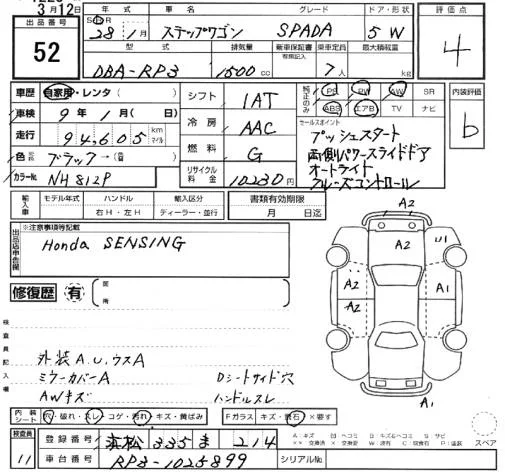 3月12日
出品番号 年式 車名 グレード ドア・形状 評価点
52 28年1月 ステップワゴン SPADA 5W 4
型式 排気量 新車保証書 乗車定員 最大積載量
DBA-RP3 1500cc 有無記載 7人 kg
車歴 自家用・レンタ( ) シフト 1AT 純正のみ PS PW AW SR 内装評価
ABS エアB TV ナビ b
車検 9年1月( 日) 冷房 AAC セールスポイント
走行 94,605 km マイル プッシュスタート
両側パワースライドドア
色 ブラック→( ) 燃料 G オートライト
カラーNo. NH812P リサイクル料金 10230円 クルーズコントロール
輸入車 モデル年式 ハンドル 輸入区分 書類有効期限
右H・左H ディーラー・並行 月 日迄
出品店申告欄 ※注意事項等記載
Honda SENSING
修復歴 有 箇所
A2 U1
A2 A1
A2 A2
A1
検査員記入欄
外装A.U.ウスA
ミラーカバーA Dシートサイド穴
AWキズ ハンドルスレ
内装シート 穴・破れ・スレ・コゲ・汚れ・キズ・黄ばみ Fガラス キズ・飛石・×要す
スペア
検査員 登録番号 浜松 335 ま 214
11 車台番号 RP3-1025899 シリアルNo.